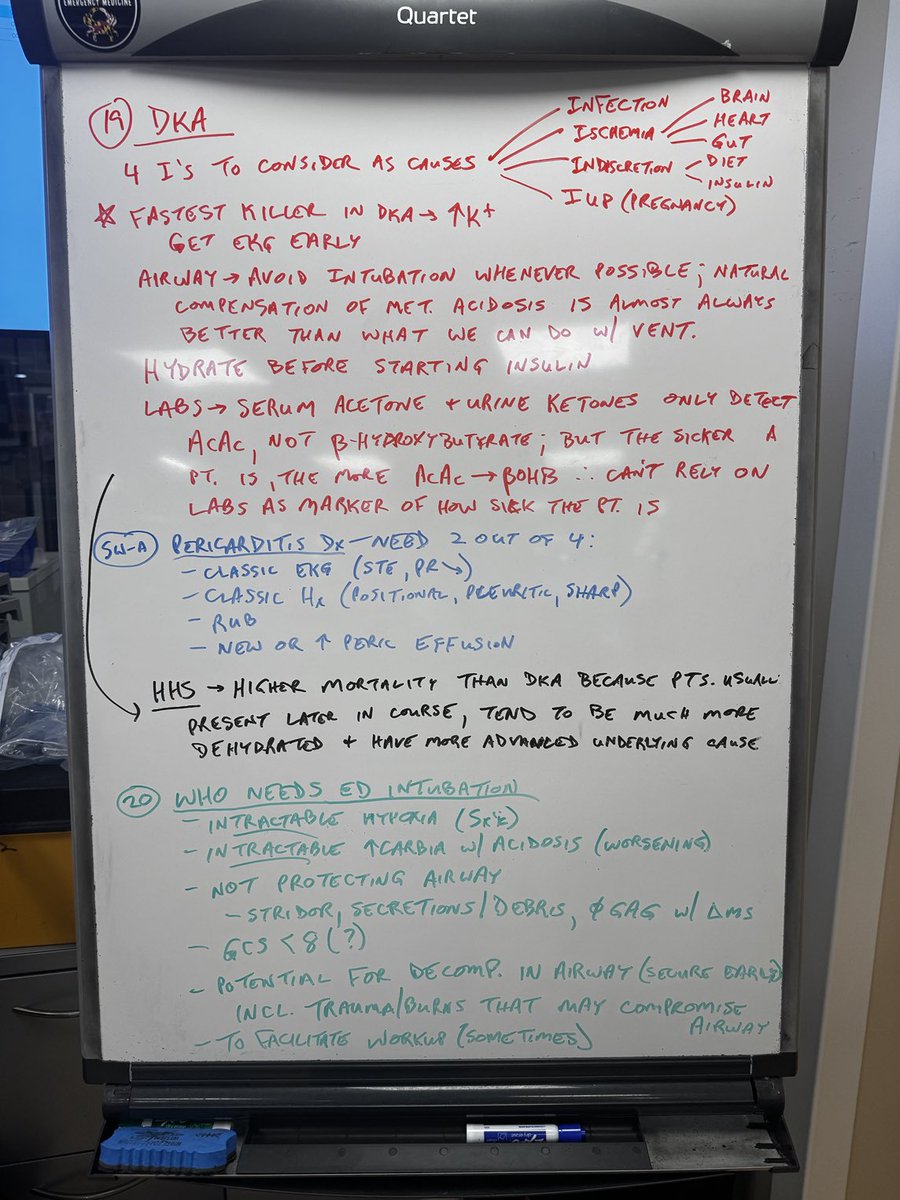 EMERGENCY MEDICINE
Quartet
19 DKA
4 I's TO CONSIDER AS CAUSES
INFECTION
ISCHEMIA
BRAIN
HEART
GUT
INDISCRETION
DIET
INSULIN
IUP (PREGNANCY)
☆ FASTEST KILLER IN DKA → ↑K+
GET EKG EARLY
AIRWAY → AVOID INTUBATION WHENEVER POSSIBLE; NATURAL
COMPENSATION OF MET. ACIDOSIS IS ALMOST ALWAYS
BETTER THAN WHAT WE CAN DO W/ VENT.
HYDRATE BEFORE STARTING INSULIN
LABS → SERUM ACETONE + URINE KETONES ONLY DETECT
ACAC, NOT β-HYDROXYBUTYRATE; BUT THE SICKER A
PT. IS, THE MORE ACAC → βOHB ∴ CAN'T RELY ON
LABS AS MARKER OF HOW SICK THE PT. IS
SW-A PERICARDITIS Dx - NEED 2 OUT OF 4:
- CLASSIC EKG (STE, PR ↘)
- CLASSIC Hx (POSITIONAL, PLEURITIC, SHARP)
- RUB
- NEW OR ↑ PERIC EFFUSION
HHS → HIGHER MORTALITY THAN DKA BECAUSE PTS. USUALL
PRESENT LATER IN COURSE, TEND TO BE MUCH MORE
DEHYDRATED + HAVE MORE ADVANCED UNDERLYING CAUSE
20 WHO NEEDS ED INTUBATION
- INTRACTABLE HYPOXIA
- INTRACTABLE ↑CARBIA W/ ACIDOSIS (WORSENING)
- NOT PROTECTING AIRWAY
- STRIDOR, SECRETIONS/DEBRIS, ∅ GAG W/ ΔMS
- GCS < 8 (?)
- POTENTIAL FOR DECOMP. IN AIRWAY (SECURE EARLY)
INCL. TRAUMA/BURNS THAT MAY COMPROMISE
AIRWAY
- TO FACILITATE WORKUP (SOMETIMES)